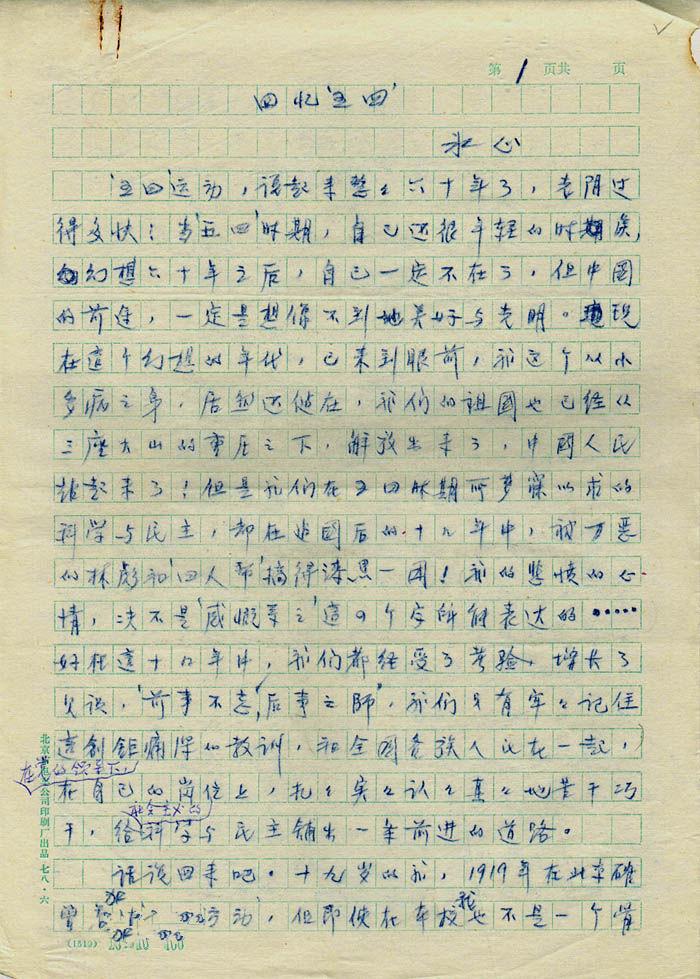 第 1 页共 页
回忆‘五四’
冰心
‘五四’运动，说起来整々六十年了，光阴过
得多快！当‘五四’时期，自己还很年轻的时候，
幻想六十年之后，自己一定不在了，但中國
的前途，一定是想像不到地美好与光明。现
在這个幻想的年代，已来到眼前，我这个从小
多病之身，居然还健在，我们的祖國也已经从
三座大山的重压之下，解放出来了，中國人民
站起来了！但是我们在五四时期所梦寐以求的
科学与民主，却在建國后的十九年中，被万恶
的林彪和‘四人帮’搞得漆黑一团！我的悲愤的心
情，决不是‘感慨系之’這四个字所能表达的……
好在這十九年中，我们都经受了考验，增长了
见识，‘前事不忘，后事之师’，我们只有牢々记住
這创鉅痛深的教训，和全國各族人民在一起，
在党的领导下，
在自己的岗位上，扎々实々认々真々地苦干巧
社会主义的
干，给科学与民主铺出一条前进的道路。
话说回来吧。十九岁的我，1919年在北京确
曾 运动’，但即使在本校我也不是一个骨
北京 公司印刷厂出品 七八·六
(1519) 400